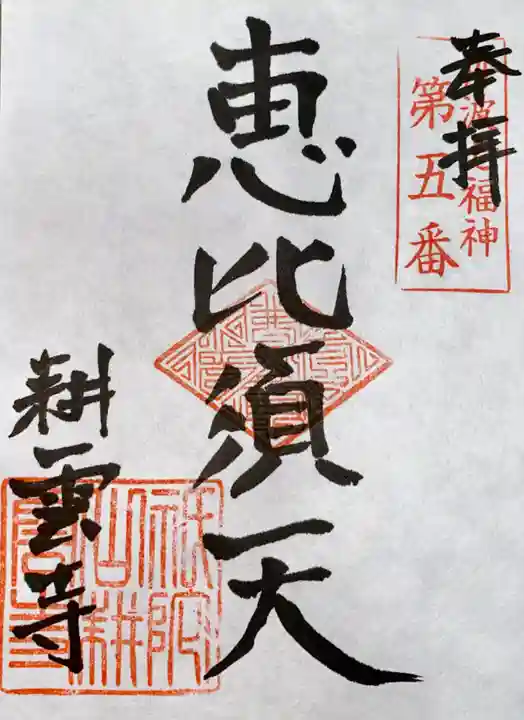 奉拝
福神
第五番
恵比須天
耕雲寺
祇陀
山耕
雲寺